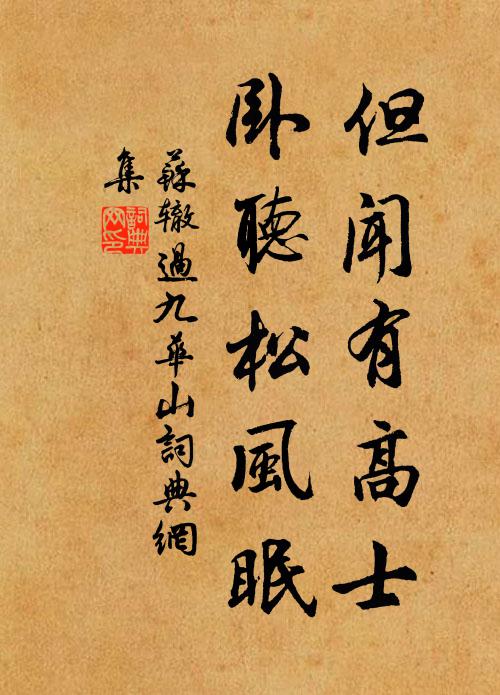 但聞有高士
臥聽松風眠
蘇轍過九華山詞典網
集
詞典
网印